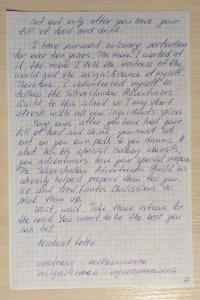 Set out only after you have your
fill of food and drink.
I have pursued culinary perfection
for over ten years. The more I worked at
it, the more I felt the vastness of the
world and the insignificance of myself.
Therefore, I volunteered myself to
follow the Silvershadow Adventurers
Guild to this island so I may start
afresh with all new ingredients, spices.
Young ones, after you have had your
fill of food and drink, you must set
out on your own path to you dreams. A
chef has his special cooking utensils,
you adventurers have your special weapons.
The Silvershadow Adventurers Guild has
already helped prepare them for you.
Go and find Santos Chalissions to
pick them up.
Wait, wait. Take these rations for
the road. You want to be the best you
can be!
vastness -
insignificance -